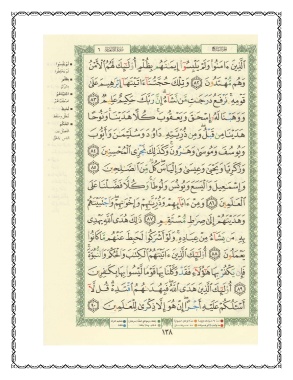 ٱلَّذِينَ ءَامَنُوا۟ وَلَمْ يَلْبِسُوٓا۟ إِيمَـٰنَهُم بِظُلْمٍ أُو۟لَـٰٓئِكَ لَهُمُ ٱلْأَمْنُ
وَهُم مُّهْتَدُونَ ٨٢ وَتِلْكَ حُجَّتُنَآ ءَاتَيْنَـٰهَآ إِبْرَٰهِيمَ عَلَىٰ
قَوْمِهِۦ نَرْفَعُ دَرَجَـٰتٍ مَّن نَّشَآءُ إِنَّ رَبَّكَ حَكِيمٌ عَلِيمٌ ٨٣
وَوَهَبْنَا لَهُۥٓ إِسْحَـٰقَ وَيَعْقُوبَ كُلًّا هَدَيْنَا وَنُوحًا
هَدَيْنَا مِن قَبْلُ وَمِن ذُرِّيَّتِهِۦ دَاوُۥدَ وَسُلَيْمَـٰنَ وَأَيُّوبَ
وَيُوسُفَ وَمُوسَىٰ وَهَـٰرُونَ وَكَذَٰلِكَ نَجْزِى ٱلْمُحْسِنِينَ ٨٤
وَزَكَرِيَّا وَيَحْيَىٰ وَعِيسَىٰ وَإِلْيَاسَ كُلٌّ مِّنَ ٱلصَّـٰلِحِينَ ٨٥
وَإِسْمَـٰعِيلَ وَٱلْيَسَعَ وَيُونُسَ وَلُوطًا وَكُلًّا فَضَّلْنَا عَلَى
ٱلْعَـٰلَمِينَ ٨٦ وَمِنْ ءَابَآئِهِمْ وَذُرِّيَّـٰتِهِمْ وَإِخْوَٰنِهِمْ وَٱجْتَبَيْنَـٰهُمْ
وَهَدَيْنَـٰهُمْ إِلَىٰ صِرَٰطٍ مُّسْتَقِيمٍ ٨٧ ذَٰلِكَ هُدَى ٱللَّهِ يَهْدِى
بِهِۦ مَن يَشَآءُ مِنْ عِبَادِهِۦ وَلَوْ أَشْرَكُوا۟ لَحَبِطَ عَنْهُم مَّا كَانُوا۟
يَعْمَلُونَ ٨٨ أُو۟لَـٰٓئِكَ ٱلَّذِينَ ءَاتَيْنَـٰهُمُ ٱلْكِتَـٰبَ وَٱلْحُكْمَ وَٱلنُّبُوَّةَ
فَإِن يَكْفُرْ بِهَا هَـٰٓؤُلَآءِ فَقَدْ وَكَّلْنَا بِهَا قَوْمًا لَّيْسُوا۟ بِهَا بِكَـٰفِرِينَ
٨٩ أُو۟لَـٰٓئِكَ ٱلَّذِينَ هَدَى ٱللَّهُ فَبِهُدَىٰهُمُ ٱقْتَدِهْ قُل لَّآ
أَسْـَٔلُكُمْ عَلَيْهِ أَجْرًا إِنْ هُوَ إِلَّا ذِكْرَىٰ لِلْعَـٰلَمِينَ ٩٠
١٣٨